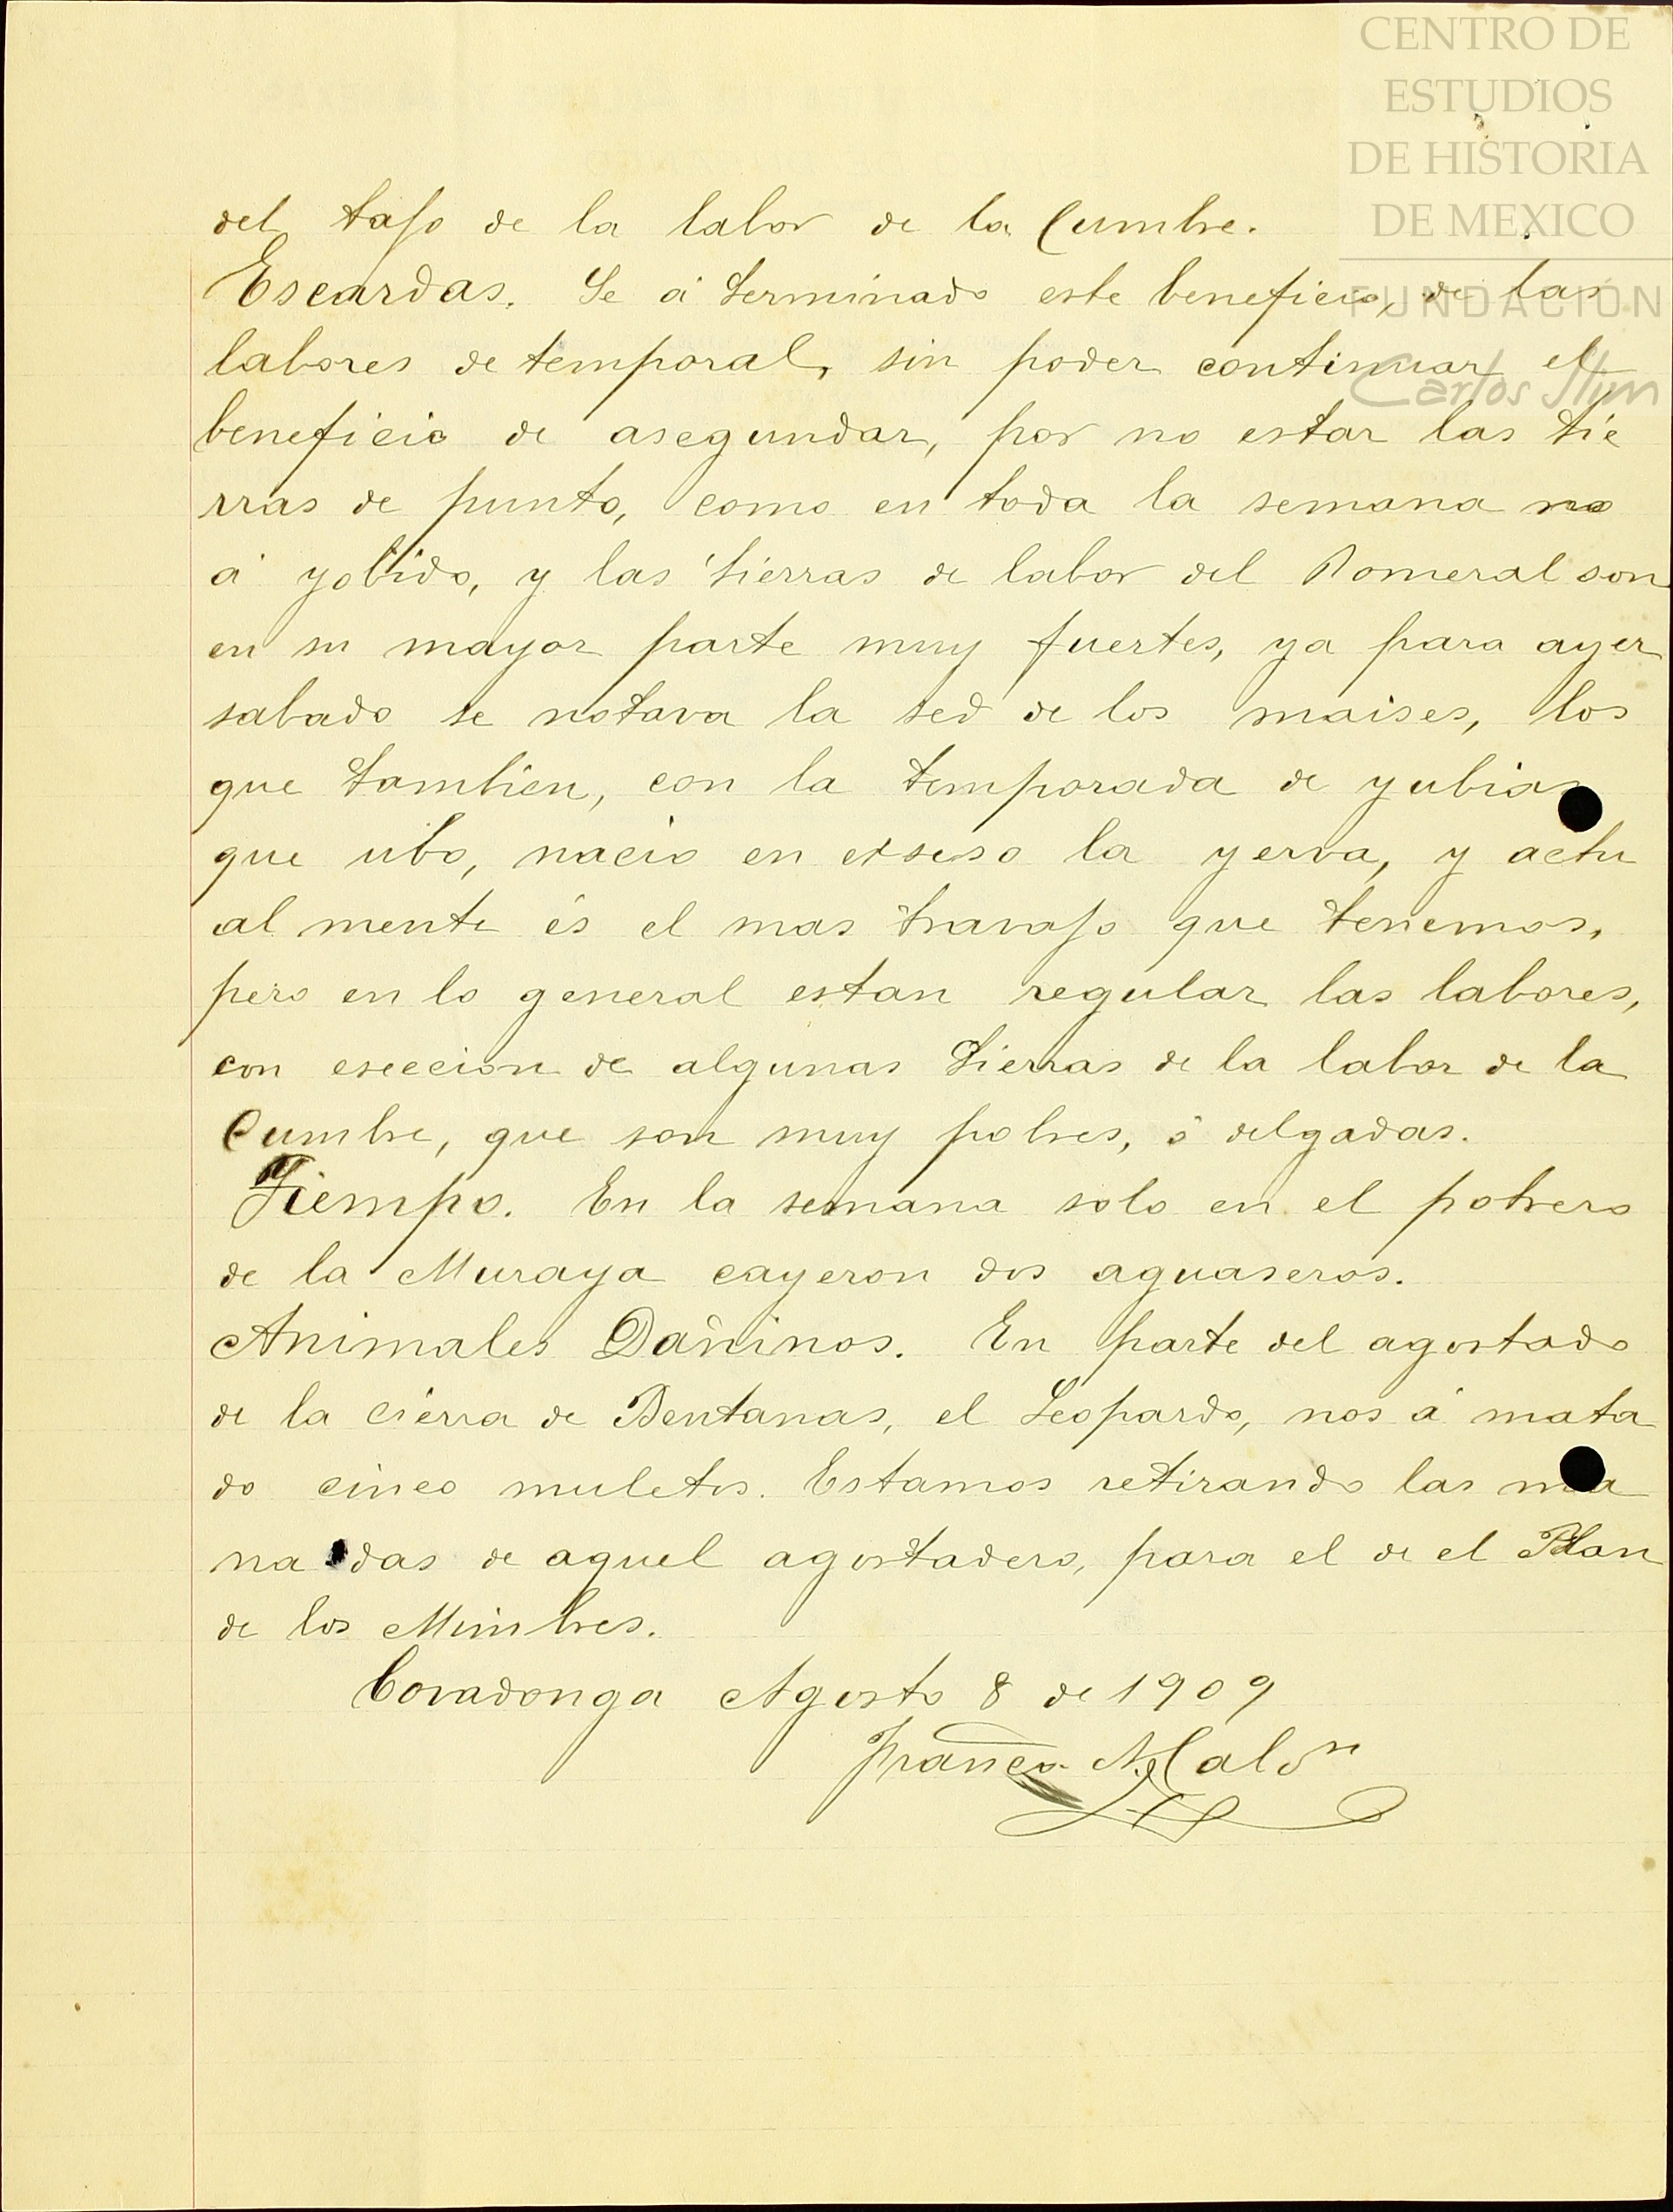 CENTRO DE
ESTUDIOS
DE HISTORIA
DE MEXICO
FUNDACIÓN
Carlos Slim
del tajo de la labor de la Cumbre.
Escardas. Se á terminado este beneficio, de las
labores de temporal, sin poder continuar el
beneficio de asegundar, por no estar las tie
rras de punto, como en toda la semana no
á yobido, y las tierras de labor del Romeral son
en su mayor parte muy fuertes, ya para ayer
sabado se notava la sed de los maises, los
que tambien, con la temporada de yubias
que ubo, nacio en exseso la yerva, y actu
al mente és el mas travajo que tenemos,
pero en lo general estan regular las labores,
con esecion de algunas tierras de la labor de la
Cumbre, que son muy pobres, ó delgadas.
Tiempo. En la semana solo en el potrero
de la Muraya cayeron dos aguaseros.
Animales Dañinos. En parte del agostado
de la cierra de Bentanas, el Leopardo, nos á mata
do cinco muletos. Estamos retirando las ma
na das de aquel agostadero, para el de el Plan
de los Mimbres.
Covadonga Agosto 8 de 1909
Franco